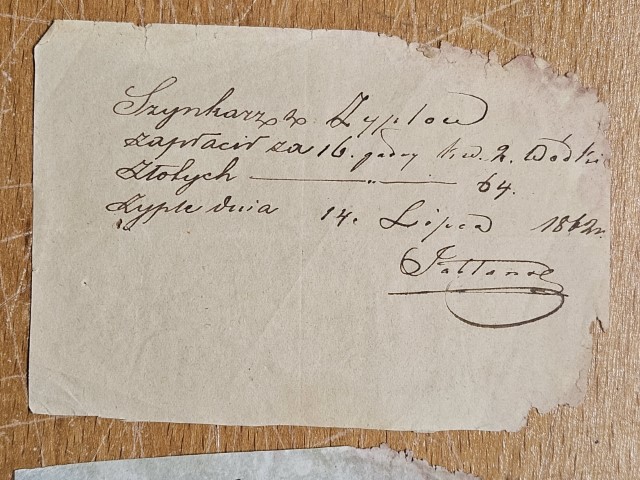 Szynkarz z Zyplow
zapłacił za 16. garcy kw. 2. Wódki
Złotych — „ — 64.
Zyple dnia 14. Lipca 1862r.